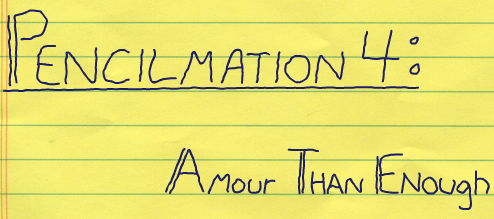 PENCILMATION 4:
AMOUR THAN ENOUGH